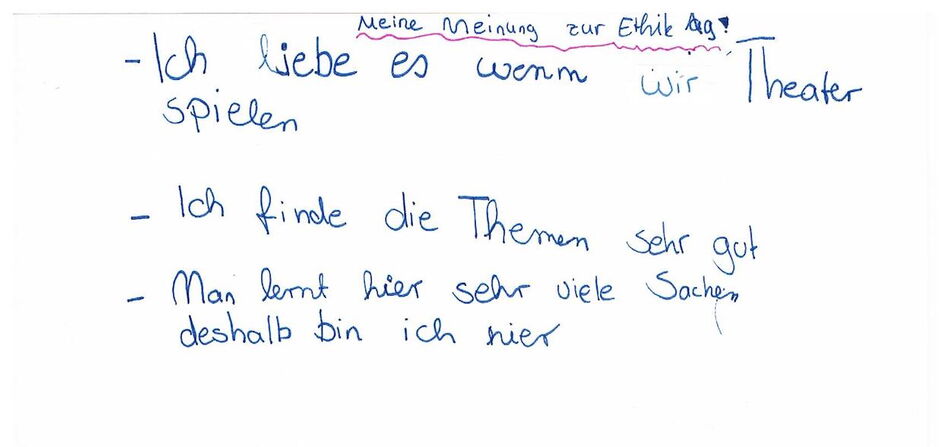 Meine Meinung zur Ethik Ag!
- Ich liebe es wenn wir Theater
spielen
- Ich finde die Themen sehr gut
- Man lernt hier sehr viele Sachen,
deshalb bin ich hier